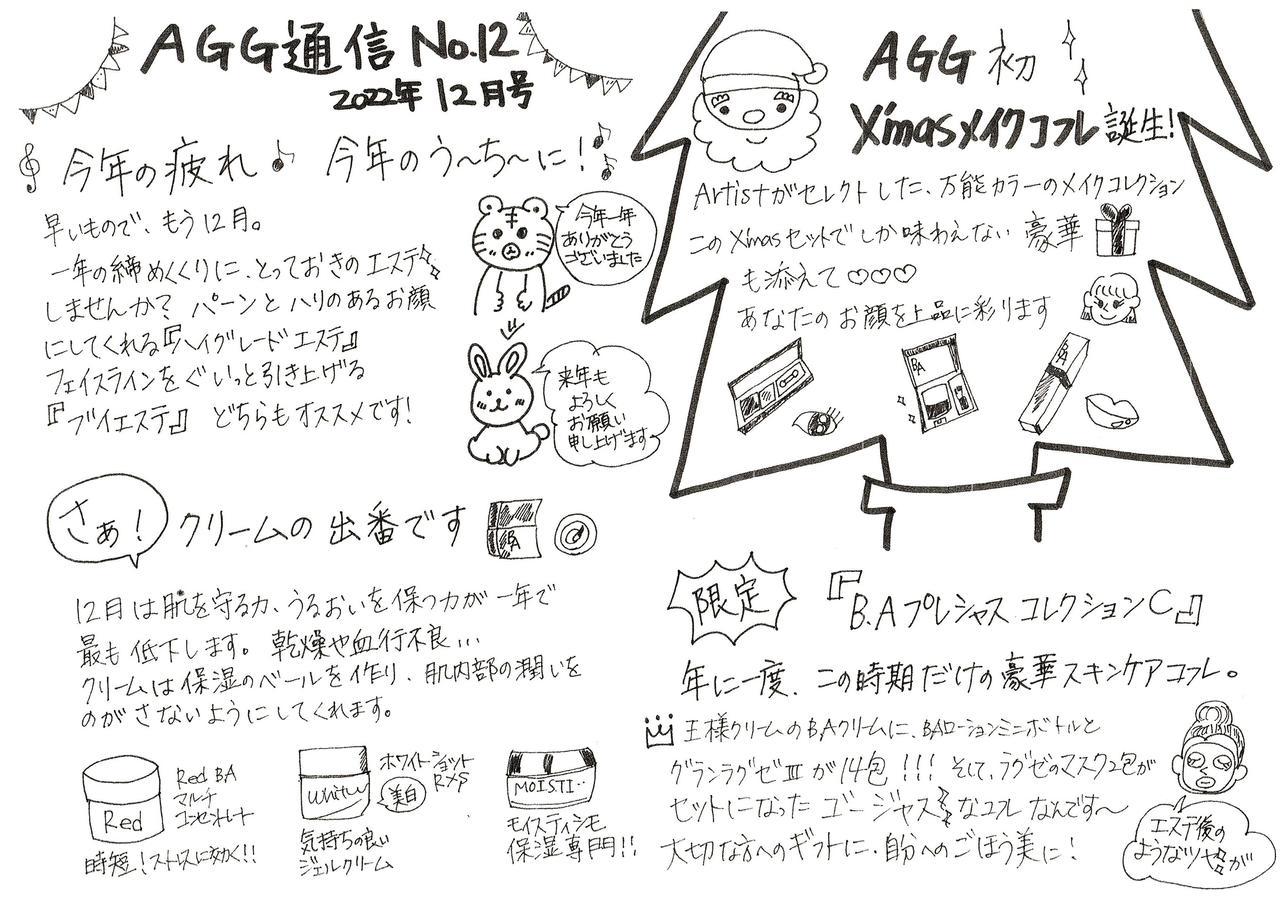 AGG通信 No.12
2022年 12月号
今年の疲れ♪ 今年のう〜ち〜に！
早いもので、もう12月。
一年の締めくくりに、とっておきのエステ
しませんか？ パーンとハリのあるお顔
にしてくれる『ハイグレードエステ』
フェイスラインをぐいっと引き上げる
『ブイエステ』 どちらもオススメです！
今年一年
ありがとう
ございました
来年も
よろしく
お願い
申し上げます
さぁ！
クリームの出番です
BA
12月は肌を守る力、うるおいを保つ力が一年で
最も低下します。乾燥や血行不良...
クリームは保湿のベールを作り、肌内部の潤いを
のがさないようにしてくれます。
Red
Red BA
マルチ
コンセントレート
時短！ストレスに効く!!
White
ホワイトショット
RXS
美白
気持ちの良い
ジェルクリーム
MOISTI‥
モイスティシモ
保湿専門!!
AGG 初
X'masメイクコフレ誕生！
Artistがセレクトした、万能カラーのメイクコレクション
このXmasセットでしか味わえない豪華
も添えて♡♡♡
あなたのお顔を上品に彩ります
BA
BA
限定
『B.Aプレシャス コレクションC』
年に一度、この時期だけの豪華スキンケアコフレ。
王様クリームのB.Aクリームに、BAローションミニボトルと
グランラグゼⅢが14包!!! そして、ラグゼのマスク2包が
セットになった ゴージャスなコフレなんです〜
大切な方へのギフトに、自分へのごほう美に！
エステ後の
ようなツヤが